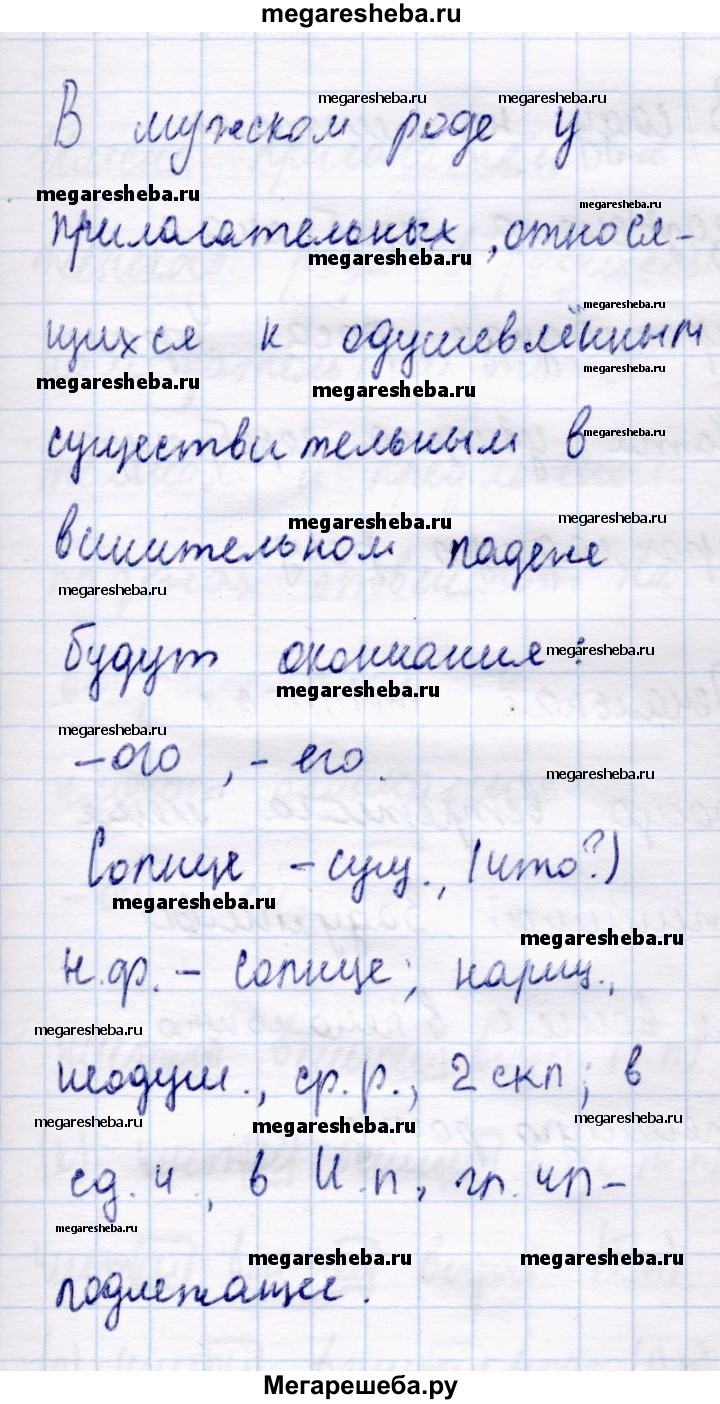 megaresheba.ru
megaresheba.ru megaresheba.ru
В мужском роде у
megaresheba.ru megaresheba.ru
прилагательных, относя-
megaresheba.ru
megaresheba.ru
щихся к одушевлённым
megaresheba.ru
megaresheba.ru megaresheba.ru
существительным в
megaresheba.ru
megaresheba.ru megaresheba.ru
винительном падеже
megaresheba.ru
будут окончания:
megaresheba.ru
megaresheba.ru
megaresheba.ru
-ого, -его.
megaresheba.ru
Солнце - сущ., (что?)
megaresheba.ru
megaresheba.ru
н.ф. - солнце; нариц.,
megaresheba.ru
неодуш., ср.р., 2 скл; в
megaresheba.ru megaresheba.ru megaresheba.ru
ед.ч., в И.п, гл. чл -
megaresheba.ru
megaresheba.ru megaresheba.ru
подлежащее.
Мегарешеба.ру